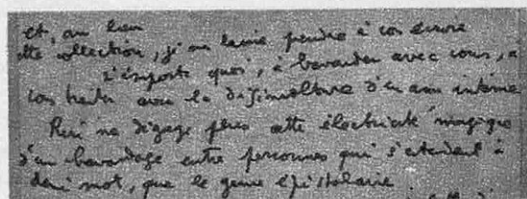 et, au lieu
cette collection, je me laisse prendre à vos livres
n'importe quoi, à bavarder avec vous, à
vous traiter avec la désinvolture d'un ami intime
Rien ne dégage plus cette électricité magique
d'un bavardage entre personnes qui s'entendent à
demi mot, que le genre épistolaire